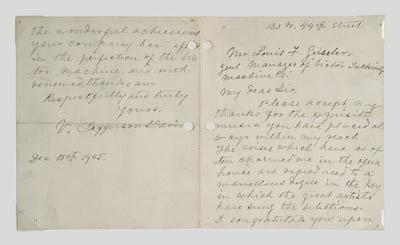 123 W. 44th Street.
Mr. Louis F. Geissler,
Genl Manager of Victor Talking
Machine Co.
My Dear Sir,
Please accept my
thanks for the exquisite
music you have placed al,
ways within my reach
The voices which have so of
ten charmed me in the opera
house are reproduced to a
marvellous degree in the key
in which the great artists
have sung the selections.
I congratulate you upon
the wonderful achievement
your company has
in the perfection of the Vic
tor machine, and with
renewed thanks am
Respectfully and truly
Yours.
V. Jefferson Davis
Dec 15th 1905.